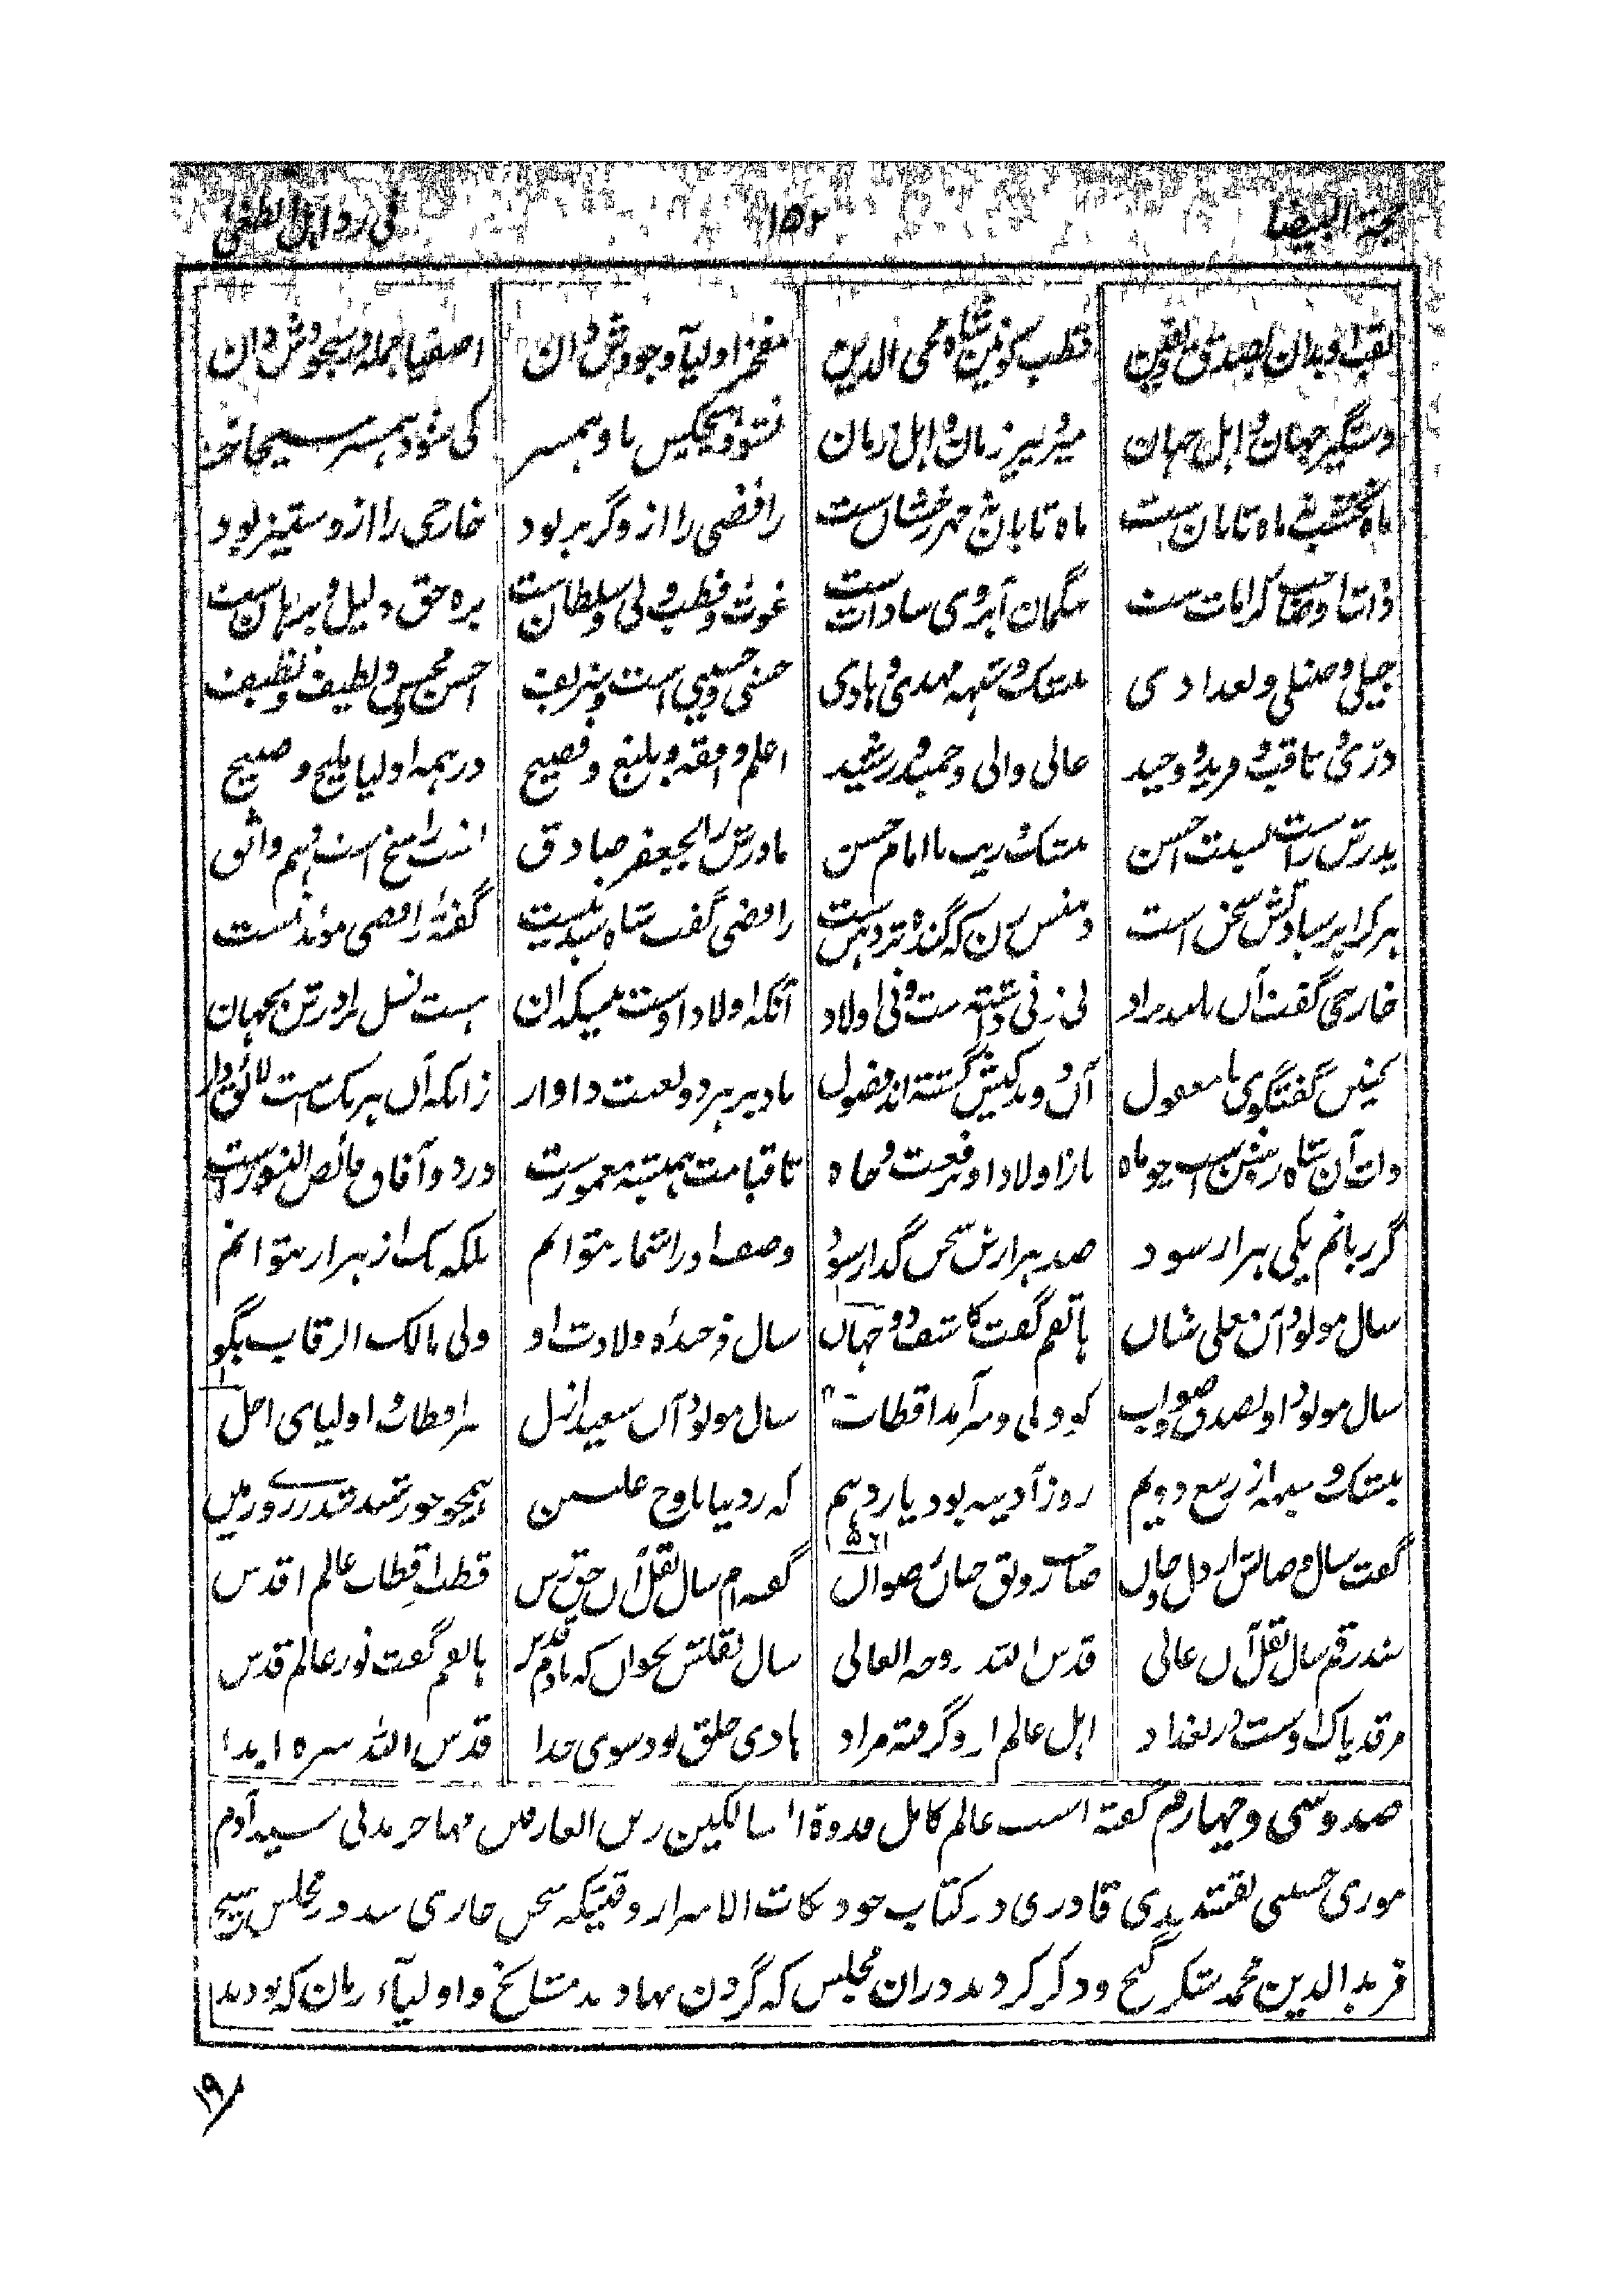 حجة البيضا ١٥٢ فی رد اہل الطغی
لقب او بدان بصدق و یقین قطب کونین شاه محی الدین مفخر اولیآ وجودش دان اصفیا جمله در سجودش دان
دستگیر جهان و اہل جهان میر و پیر زمان و اہل زمان نشود ہیچکس باو ہمسر کی شود ہمسر مسیحا خر
ماه نخشب نے ماه تابان ست ماه تابان نه مهر رخشان ست رافضی را ازو گریز بود خارجی را ازو ستیز بود
ذات او صاحب کرامات ست بیگمان آبروی سادات ست غوث و قطب و ولی و سلطان ست بره حق دلیل و برہان ست
جیلی و حنبلی و بغدادی بیشک و شبهه مهدی و ہادی حسنی و حسینی است و شریف احسن و محسن و لطیف و نظیف
درّی ثاقب و فرید و وحید عالی و والی و حمید و رشید اعلم و افقه و بلیغ و فصیح در ہمه اولیا ملیح و صبیح
پدرش راست نسبت احسن بیشک و ریب با امام حسن مادرش را بجعفر صادق نسبت راسخ است و ہم واثق
ہر کرا بر سیادتش سخن است رافضی گفت شاه سید نیست گفتۂ رافضی مؤید نیست
خارجی گفت آن بلند نژاد نی زنی داشته ست و نی اولاد آنکه اولاد اوست بیش بدان ہست نسل برادرش بجهان
کین گفتگوی نا معقول آن دو بدکیش گشته اند فضول باد بر ہر دو لعنت دادار زانکه آن ہر یک ست لائق دار
ذات آن شاه روشن است چو ماه باز اولاد او برفعت و جاه تا قیامت ہمیشه معمور ست در دو آفاق فائض النور ست
گر زبانم یکی ہزار شود صد ہزارش سخن گذار شود وصف او را شمار نتوانم بلکه یک از ہزار نتوانم
سال مولود آن معلی شان ہاتفم گفت کاشف دو جهان سال فرخنده ولادت او ولی مالک الرقاب بگو
سال مولود او بصدق و صواب گو ولی و سرآمد اقطاب سال مولود آن سعید ازل سر اقطاب و اولیای اجل
بیشک و شبهه از ربیع دویم روز آدینه بود یازدہم که ز دنیا باوج علیین ہمچو خورشید شد ز روی زمین
٥٦١
گفت سال وصالش از دل و جان صاحب رونق جنان رضوان گفته ام سال نقل آن حق رس قطب اقطاب عالم اقدس
شد رقم سال نقل آن عالی قدس الله روحه العالی سال نقلش بخوان که ہاتفم گفت نور عالم قدس
مرقد پاک اوست در بغداد اہل عالم ازو گرفته مراد ہادی خلق بود سوی خدا قدس الله سره ابدا
صد و سی و چهارم گفته است عالم کامل قدوة السالکین زین العارفین مهاجر مدنی سید آدم
بنوری حسینی نقشبندی قادری در کتاب خود نکات الاسرار وقتیکه سخن جاری شد در مجلس شیخ
فرید الدین محمد شکر گنج و ذکر کردند دران مجلس که گردن نهادند مشایخ و اولیآء زمان که بودند
١٩